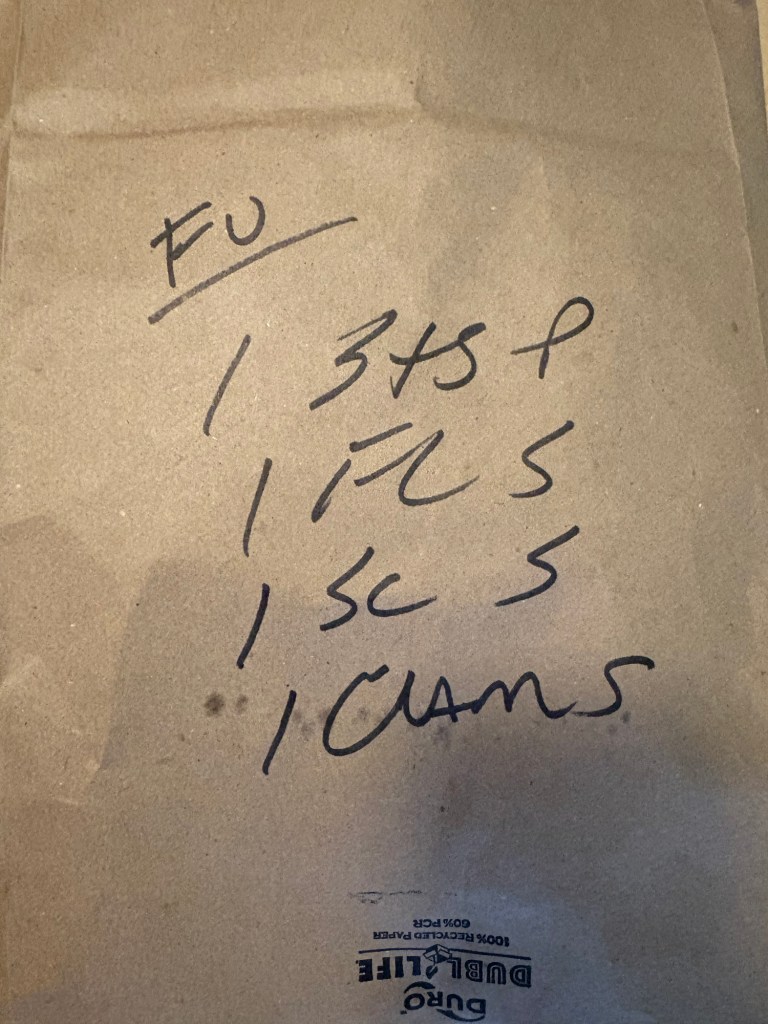 FU
1 3+S P
1 FL S
1 SC S
1 CLAMS
DURO
DUBL LIFE
100% RECYCLED PAPER
60% PCR